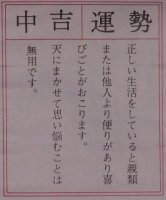 運勢
中吉
正しい生活をしていると親類
または他人より便りがあり喜
びごとがおこります。
天にまかせて思い悩むことは
無用です。